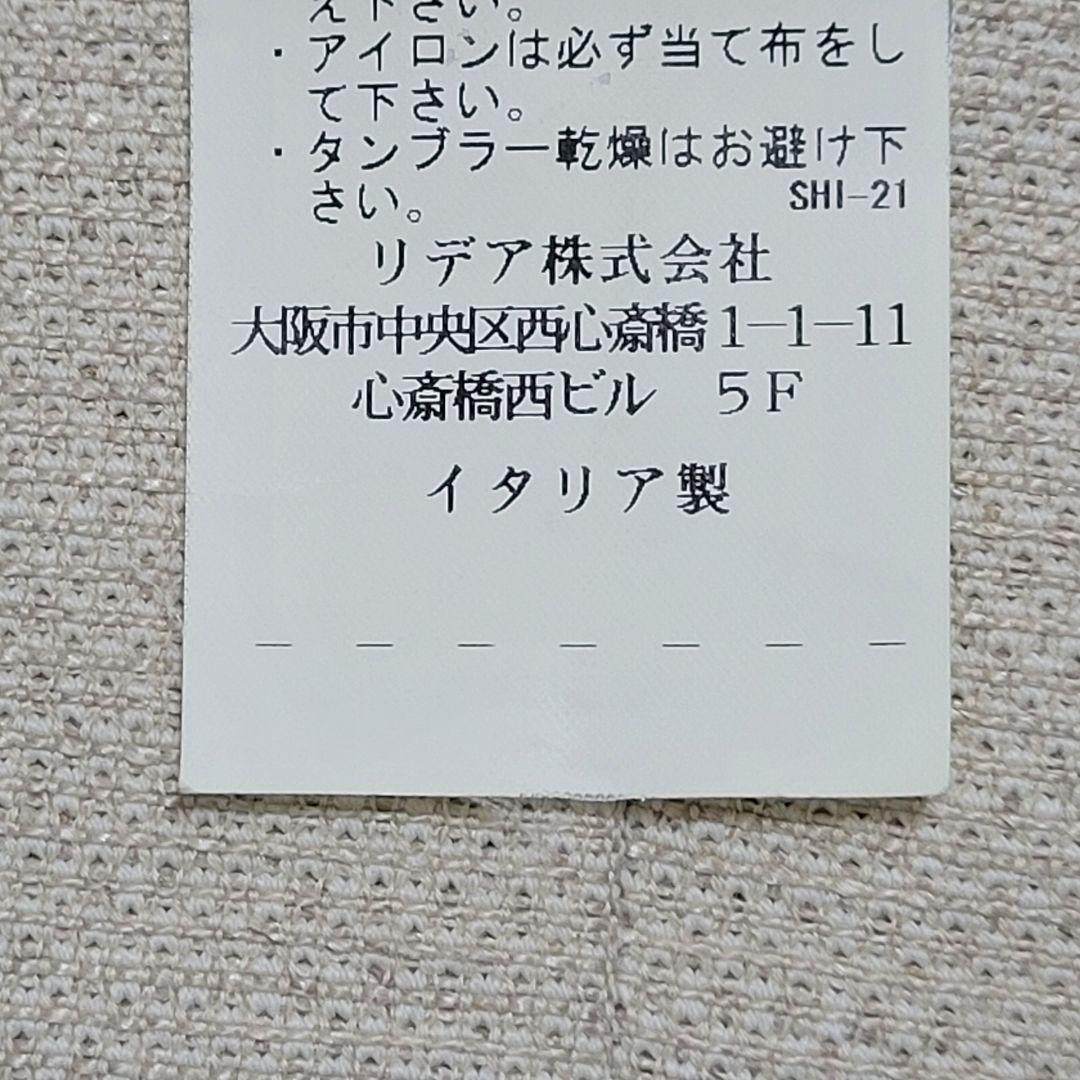 え下さい。
・アイロンは必ず当て布をし
て下さい。
・タンブラー乾燥はお避け下
さい。 SHI-21
リデア株式会社
大阪市中央区西心斎橋1-1-11
心斎橋西ビル 5F
イタリア製